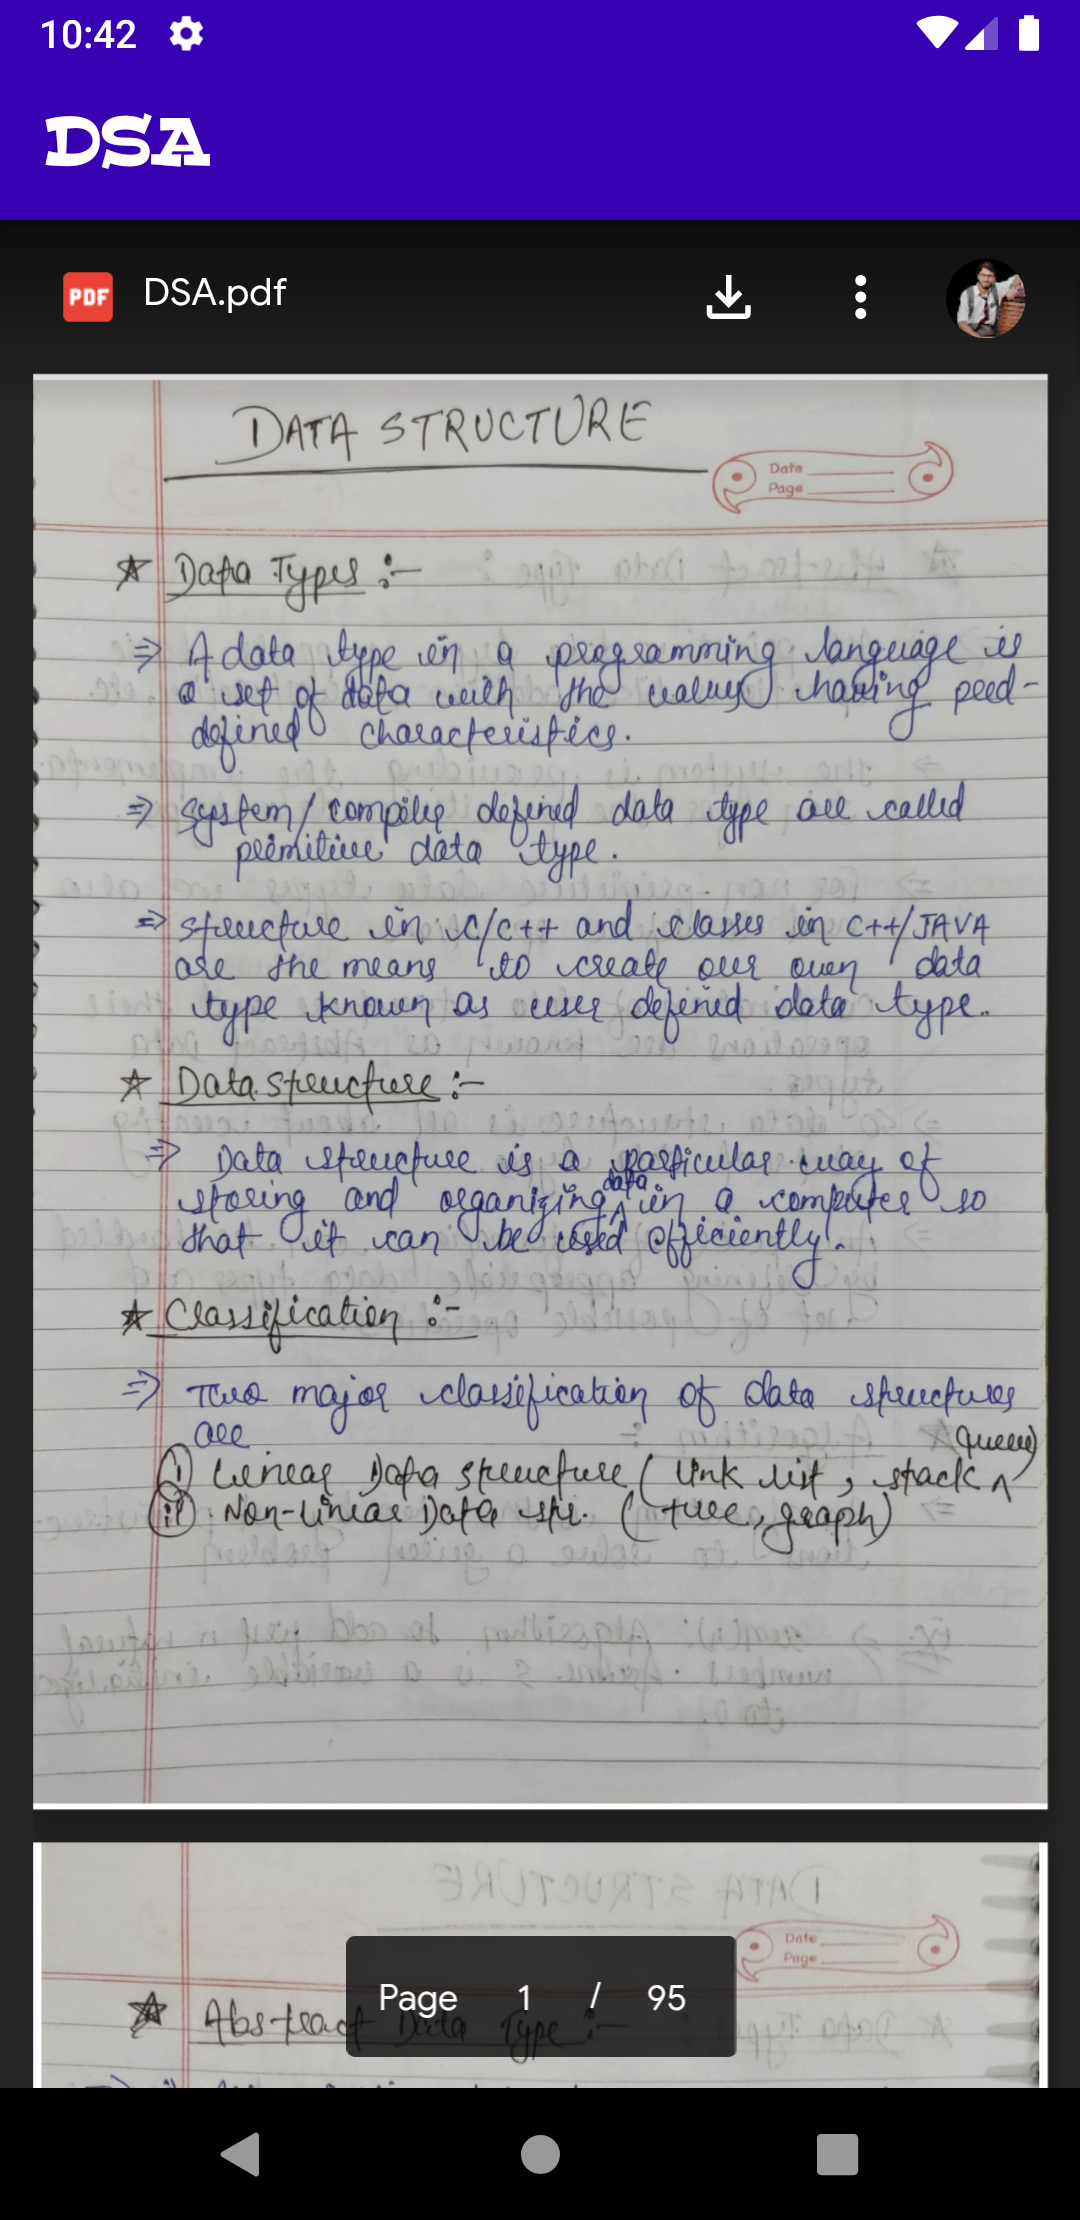 10:42
DSA
PDF DSA.pdf
DATA STRUCTURE
Date
Page
Data Types :-
⇒ A data type in a programming language is
a set of data with the values having pred-
defined characteristics.
⇒ System/compiler defined data type are called
primitive data type.
⇒ structure in C/C++ and classes in C++/JAVA
are the means to create our own data
type known as user defined data type.
Data structure :-
⇒ Data structure is a particular way of
storing and organizing data in a computer so
that it can be used efficiently.
Classification :-
⇒ Two major classification of data structures
are
(i) Linear Data structure (link list, stack, queue)
(ii) Non-Linear Data str. (tree, graph)
Date
Page
Abstract Data Type :-
Page 1 / 95